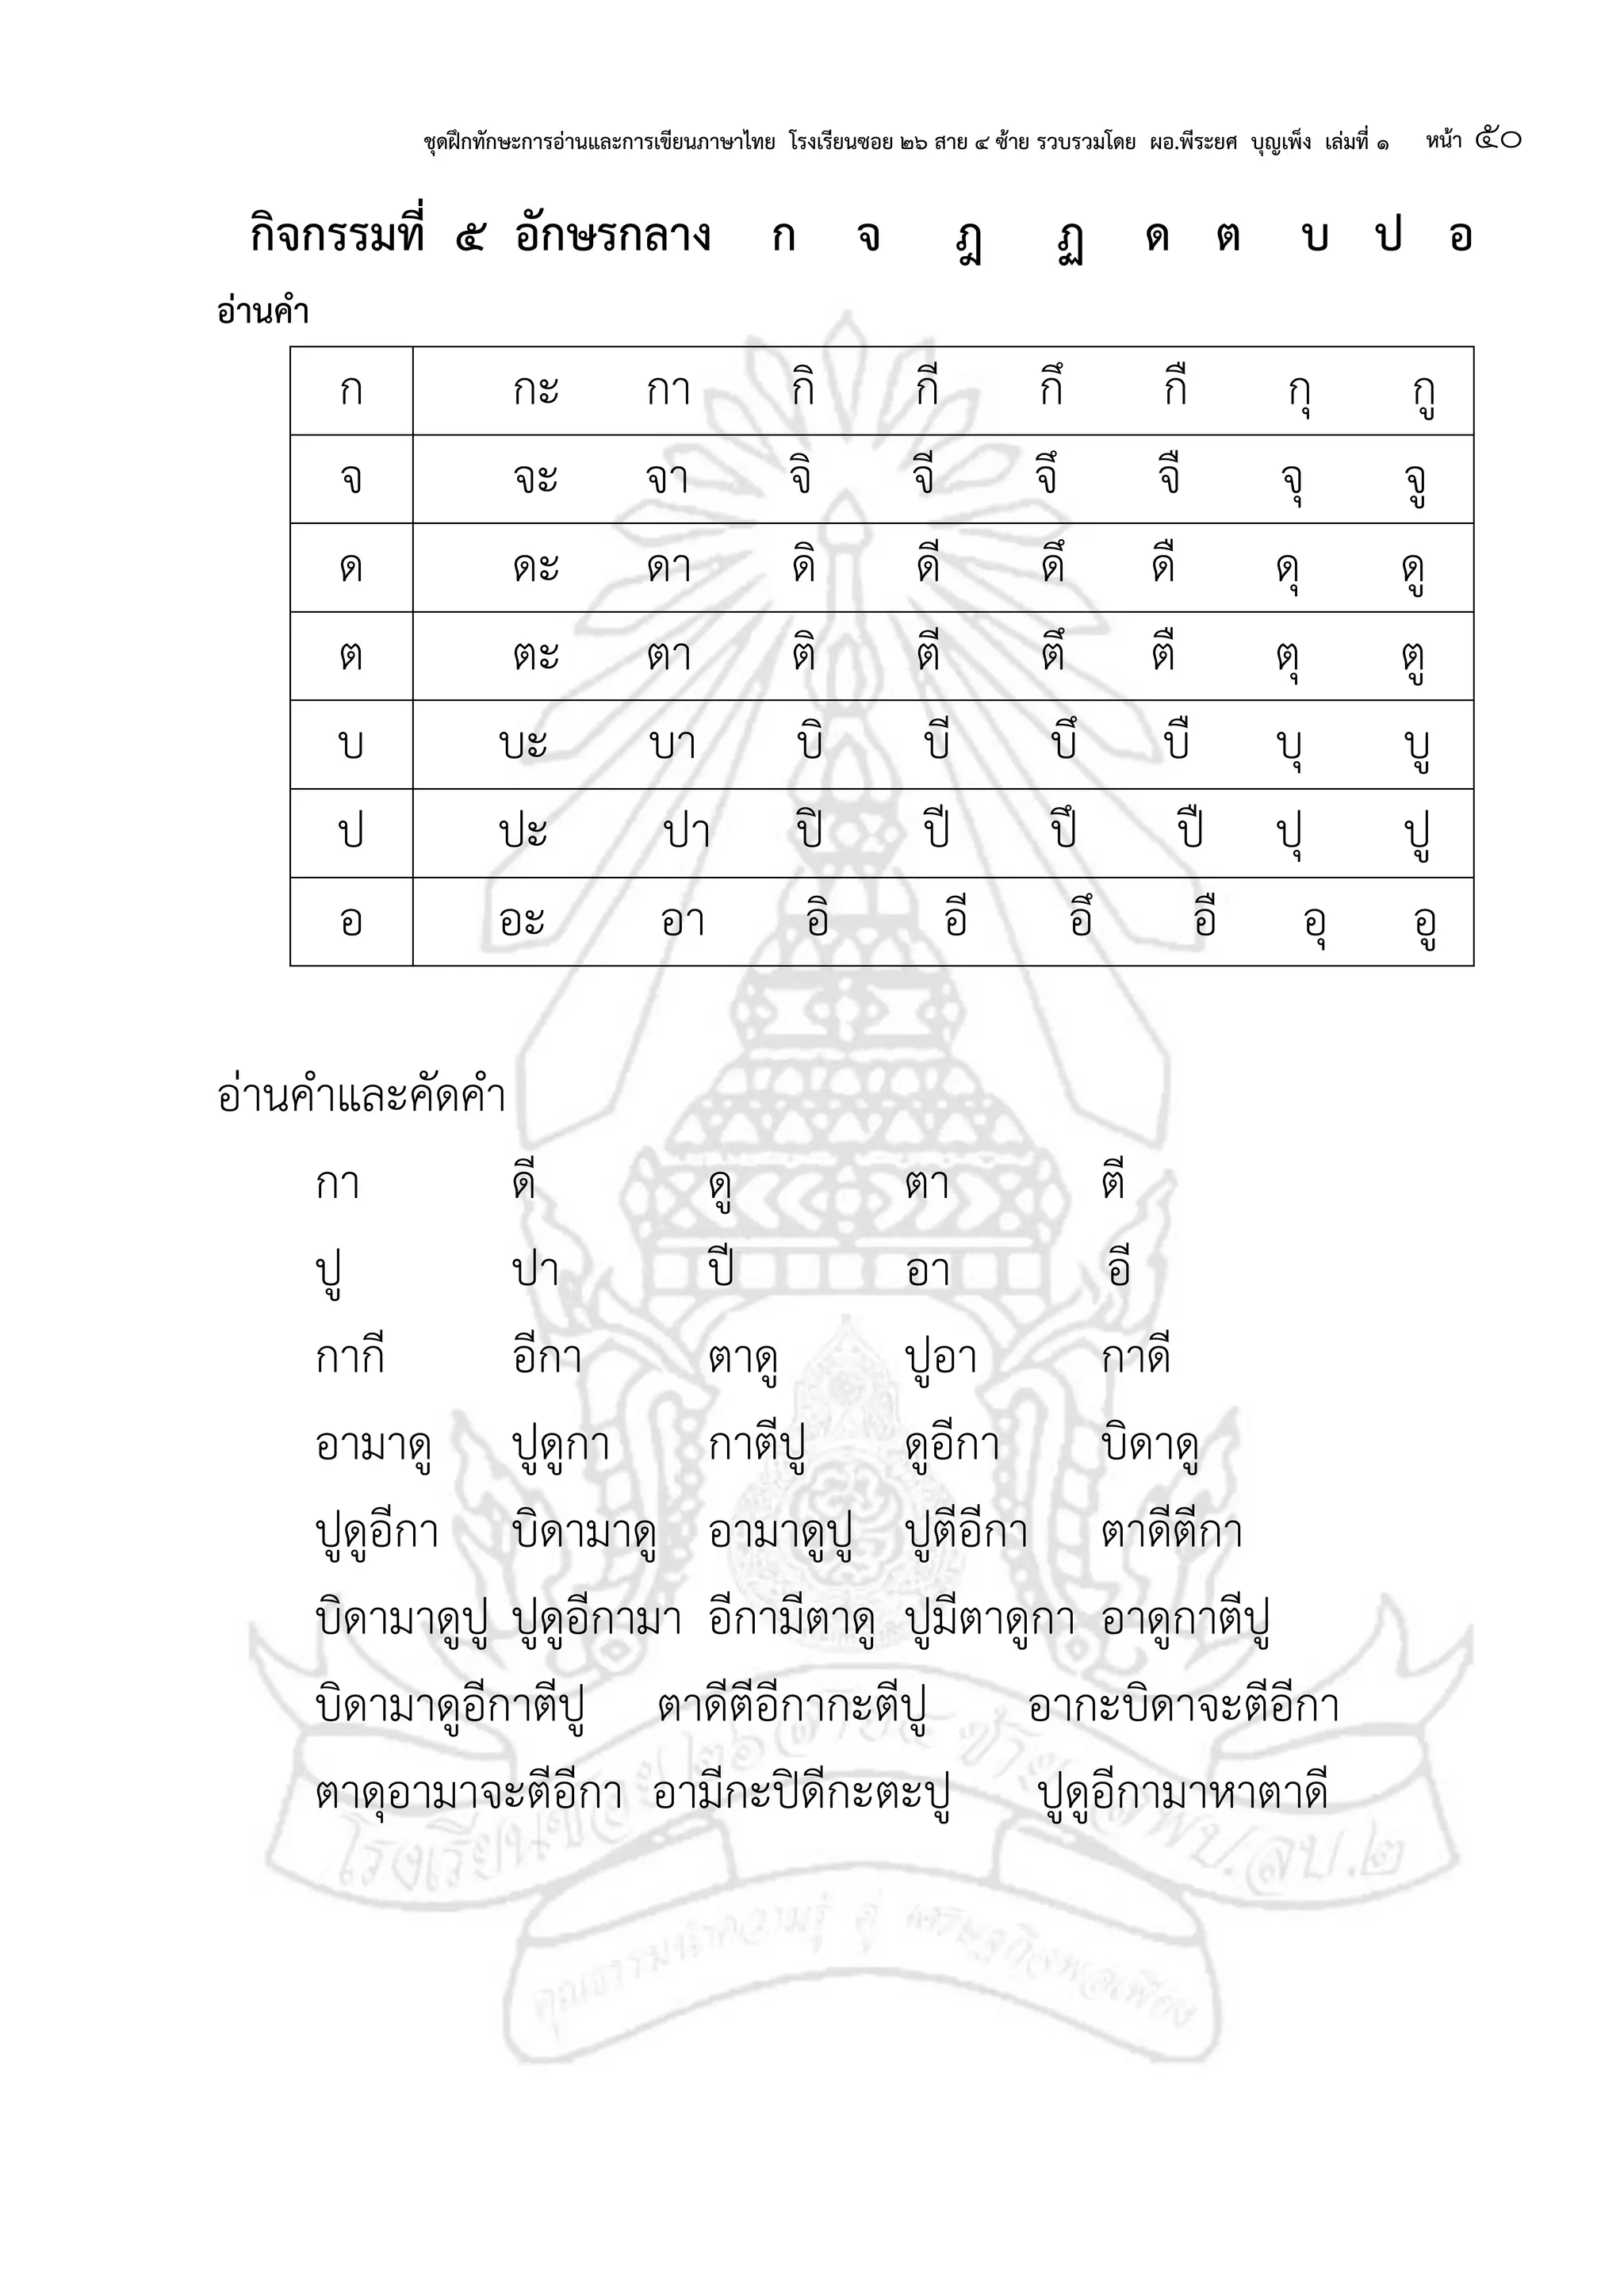 ชุดฝึกทักษะการอ่านและการเขียนภาษาไทย โรงเรียนซอย ๒๖ สาย ๔ ซ้าย รวบรวมโดย ผอ.พีระยศ บุญเพ็ง เล่มที่ ๑ หน้า ๕๐
กิจกรรมที่ ๕ อักษรกลาง ก จ ฎ ฏ ด ต บ ป อ
อ่านคำ
ก กะ กา กิ กี กึ กื กุ กู
จ จะ จา จิ จี จึ จื จุ จู
ด ดะ ดา ดิ ดี ดึ ดื ดุ ดู
ต ตะ ตา ติ ตี ตึ ตื ตุ ตู
บ บะ บา บิ บี บึ บื บุ บู
ป ปะ ปา ปิ ปี ปึ ปื ปุ ปู
อ อะ อา อิ อี อึ อื อุ อู
อ่านคำและคัดคำ
กา ดี ดู ตา ตี
ปู ปา ปี อา อี
กากี อีกา ตาดู ปูอา กาดี
อามาดู ปูดูกา กาตีปู ดูอีกา บิดาดู
ปูดูอีกา บิดามาดู อามาดูปู ปูตีอีกา ตาดีตีกา
บิดามาดูปู ปูดูอีกามา อีกามีตาดู ปูมีตาดูกา อาดูกาตีปู
บิดามาดูอีกาตีปู ตาดีตีอีกากะตีปู อากะบิดาจะตีอีกา
ตาดุอามาจะตีอีกา อามีกะปิดีกะตะปู ปูดูอีกามาหาตาดี
โรงเรียนซอย ๒๖ สาย ๔ ซ้าย สพป.ลบ.๒
คุณธรรมนำความรู้ สู่ เศรษฐกิจพอเพียง